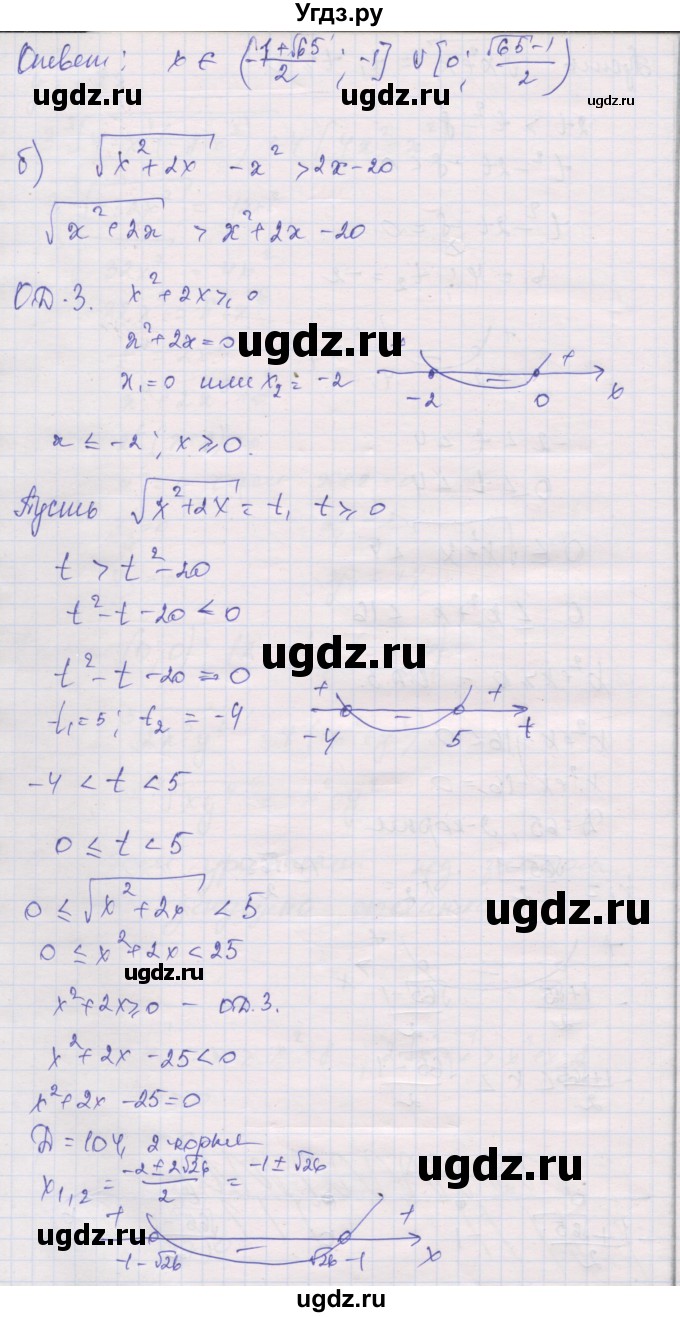 Угдз.ру
Ответ: x ∈ (-\frac{1+√65}{2}; -1] ∪ [0; \frac{√65-1}{2})
ugdz.ru ugdz.ru
б) √(x²+2x) - x² > 2x - 20
√(x²+2x) > x²+2x - 20
О.Д.З. x²+2x ≥ 0
x²+2x = 0
ugdz.ru
x₁=0 или x₂ = -2
+ - + -2 0 x
x ≤ -2; x ≥ 0.
Пусть √(x²+2x) = t, t ≥ 0
t > t²-20
t²-t-20 < 0
ugdz.ru
t²-t-20 = 0
t₁=5; t₂ = -4
+ - + -4 5 t
-4 < t < 5
0 ≤ t < 5
0 ≤ √(x²+2x) < 5
ugdz.ru
0 ≤ x²+2x < 25
ugdz.ru
x²+2x ≥ 0 - О.Д.З.
x²+2x - 25 < 0
x²+2x - 25 = 0
Д = 104, 2 корня
ugdz.ru
x₁,₂ = \frac{-2±2√26}{2} = -1±√26
+ - +
ugdz.ru
-1-√26 √26-1 x
ugdz.ru